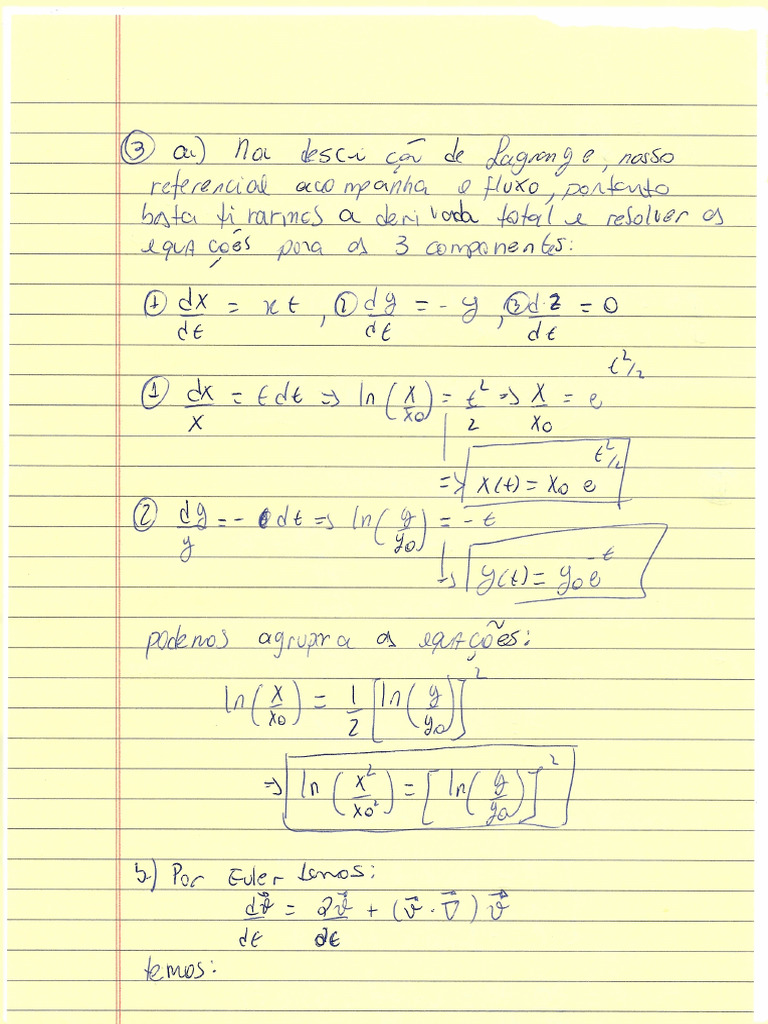 ③ a) Na descrição de Lagrange, nosso
referencial acompanha o fluxo, portanto
basta tirarmos a derivada total e resolver as
equações para as 3 componentes:
① dx/dt = xt, ② dy/dt = -y, ③ dz/dt = 0
① dx/x = t dt => ln(x/x0) = t²/2 => x/x0 = e^(t²/2)
=> x(t) = x0 e^(t²/2)
② dy/y = - dt => ln(y/y0) = -t
=> y(t) = y0 e^(-t)
podemos agrupra as equações:
ln(x/x0) = 1/2 [ln(y/y0)]²
=> ln(x²/x0²) = [ln(y/y0)]²
b) Por Euler temos:
dv⃗/dt = ∂v⃗/∂t + (v⃗ · ∇⃗) v⃗
temos: